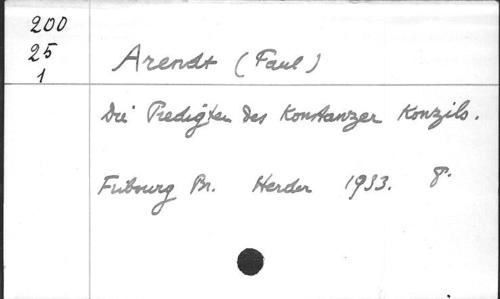 200
25
1
Arendt (Paul)
Die Predigten des Konstanzer Konzils.
Fribourg Br. Herder 1933. 8°.